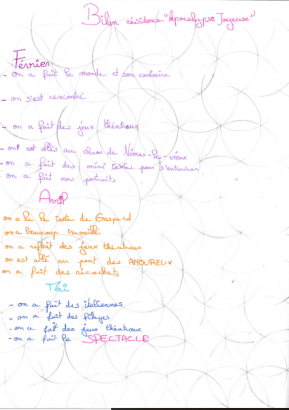 Bilan résidence "Apocalypse Joyeuse"
Février
- on a fait le monde et son contraire
- on s'est rencontré
- on a fait des jeux théatraux
- on est allés au de Nîmes-le-vieux
- on a fait des mini textes pour s'entrainer
on a fait nos portraits
Avril
on a lu le texte de Gaspard
on a beaucoup travaillé
on a refait des jeux théatraux
on est allé au pont des AMOUREUX
on a fait des ricochets
Mai
- on a fait des italiennes
- on a fait des filages
- on a fait des jeux théatraux
- on a fait le SPECTACLE